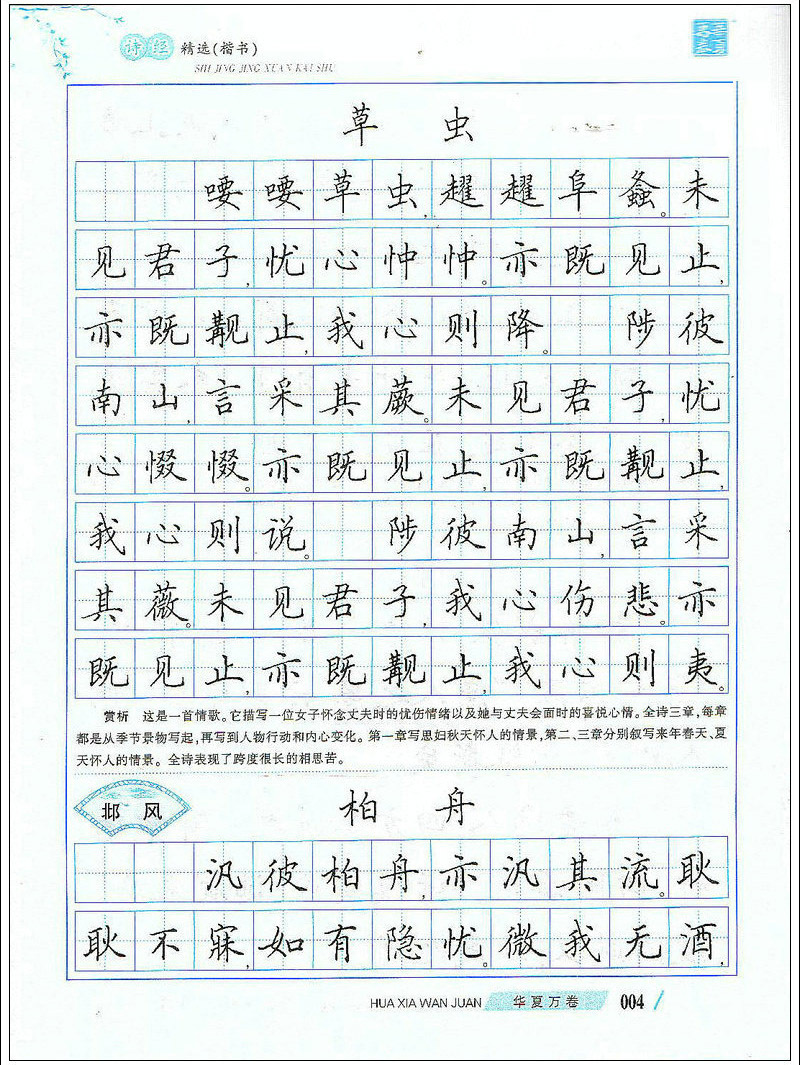 诗经 精选(楷书)
SHI JING JING XUAN KAI SHU
草 虫
喓喓草虫,趯趯阜螽。未
见君子,忧心忡忡。亦既见止,
亦既觏止,我心则降。 陟彼
南山,言采其蕨。未见君子,忧
心惙惙。亦既见止,亦既觏止,
我心则说。 陟彼南山,言采
其薇。未见君子,我心伤悲。亦
既见止,亦既觏止,我心则夷。
赏析 这是一首情歌。它描写一位女子怀念丈夫时的忧伤情绪以及她与丈夫会面时的喜悦心情。全诗三章,每章
都是从季节景物写起,再写到人物行动和内心变化。第一章写思妇秋天怀人的情景,第二、三章分别叙写来年春天、夏
天怀人的情景。全诗表现了跨度很长的相思苦。
邶 风
柏 舟
汎彼柏舟,亦汎其流。耿
耿不寐,如有隐忧。微我无酒,
HUA XIA WAN JUAN 华夏万卷 004